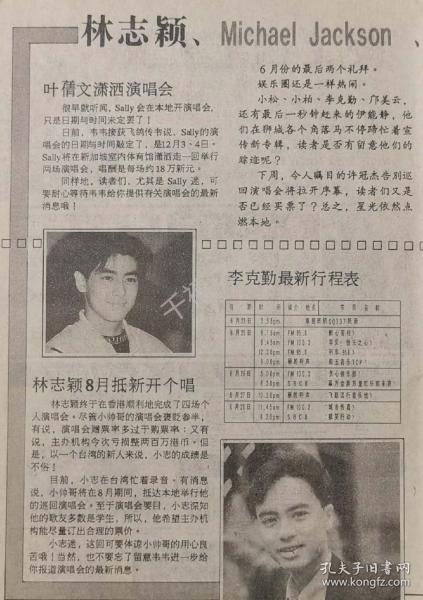 林志颖、Michael Jackson、
叶蒨文潇洒演唱会
很早就听闻，Sally会在本地开演唱会，
只是日期与时间未定罢了！
日前，韦韦接获飞鸽传书说，Sally的演
唱会的日期与时间敲定了，是12月3、4日。
Sally将在新加坡室内体育馆潇洒走一回举行
两场演唱会，唱酬是每场约18万新元。
同样地，读者们，尤其是Sally迷，可
要耐心等待韦韦给你提供有关演唱会的最新
消息哦！
6月份的最后两个礼拜。
娱乐圈还是一样热闹。
小松、小柏、李克勤、邝美云，
还有最后一秒钟赶来的伊能静，他
们在狮城各个角落马不停蹄忙着宣
传新专辑，读者是否有留意他们的
踪迹呢？
下周，令人瞩目的许冠杰告别巡
回演唱会将拉开序幕，读者们又是
否已经买票了？总之，星光依然点
燃本地。
林志颖8月抵新开个唱
林志颖终于在香港顺利地完成了四场个
人演唱会。尽管小帅哥的演唱会褒贬参半，
有说，演唱会赠票率多过于购票率；又有
说，主办机构今次亏损整两百万港币。但
是，以一个台湾的新人来说，小志的成绩是
不俗！
目前，小志在台湾忙着录音。有消息
说，小帅哥将在8月期间，抵达本地举行他
的巡回演唱会。至于演唱会要目，小志深知
他的歌友多数是学生，所以，他希望主办机
构能尽量订出合理的票价。
小志迷，这回可要体谅小帅哥的用心良
苦哦！当然，也不要忘了留意韦韦进一步给
你报道演唱会的最新消息。
李克勤最新行程表
日期 时间
6月23日
6月25日
FM 95.8
FM 100.3
6月26日
FM 100.3
6月27日
6月28日
FM 100.3
孔夫子旧书网
www.kongfz.com